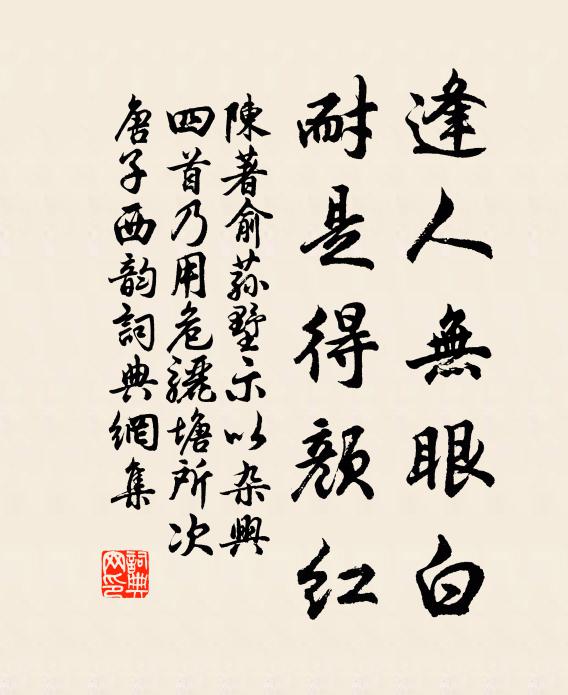 逢人無眼白
耐是得顏紅
陳著俞荪墅示以杂興
四首乃用危驪塘所次
唐子西韵詞典網集
詞典網印